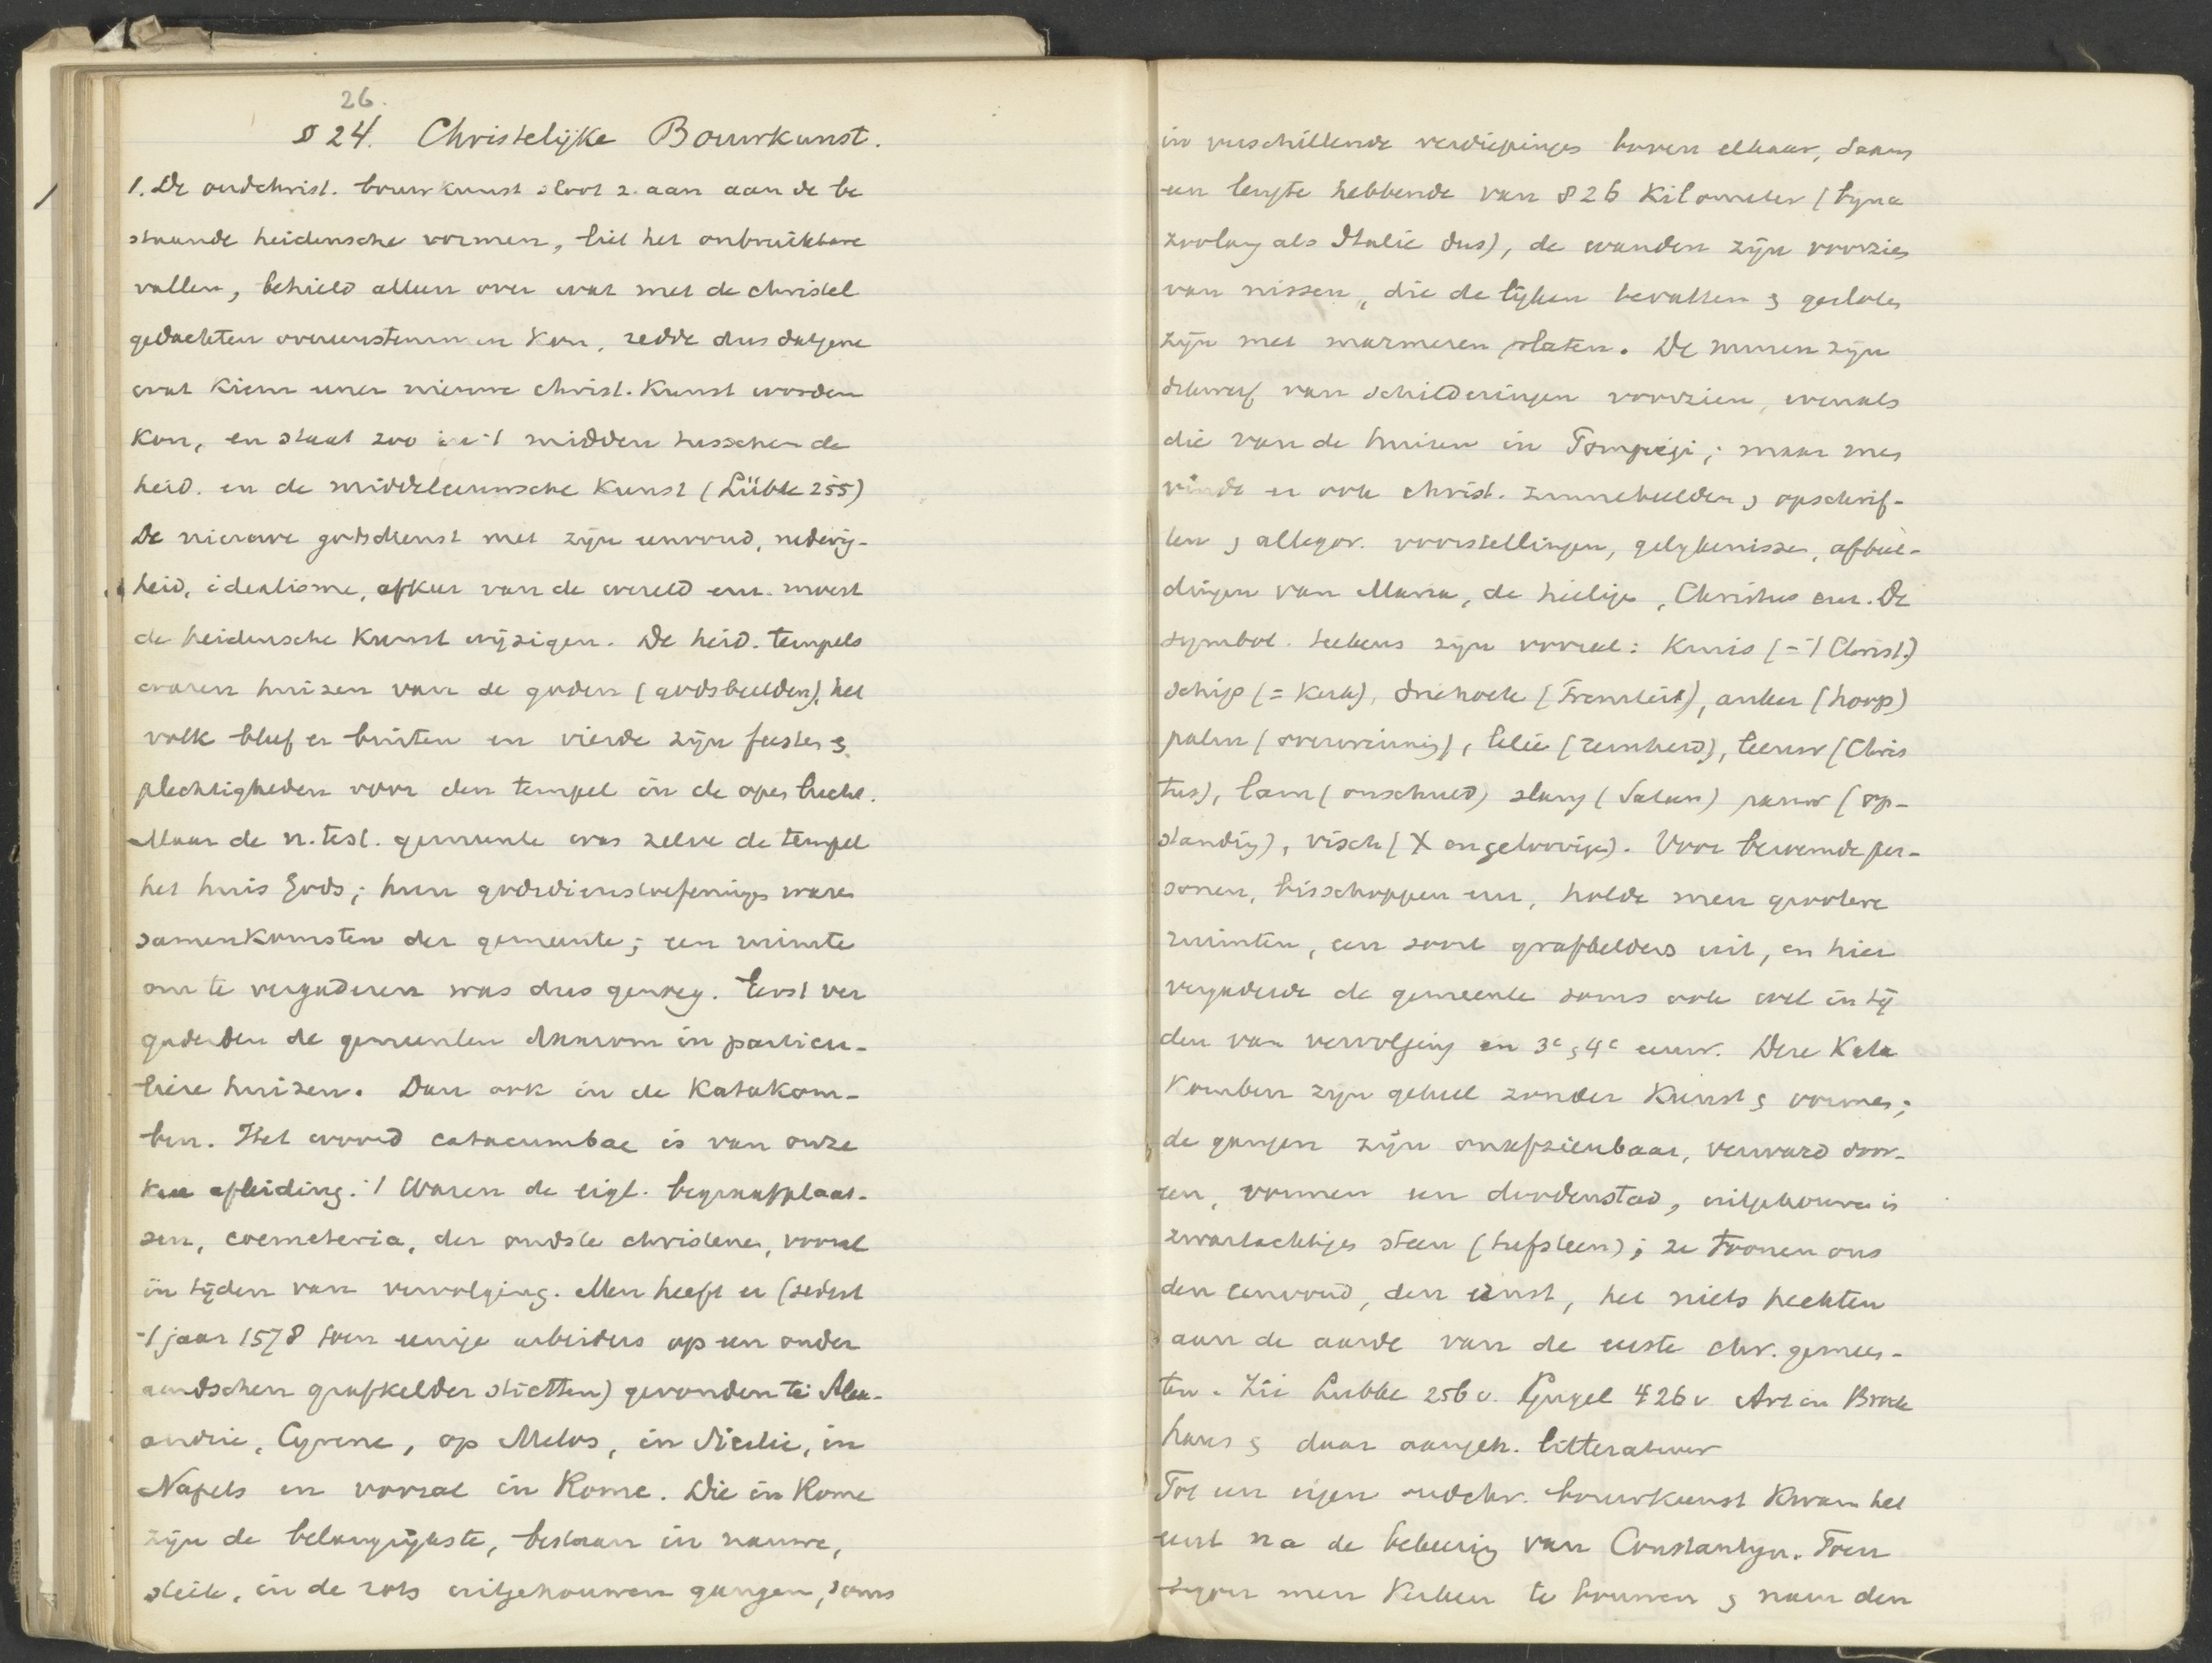 26.
§ 24. Christelijke Bouwkunst.
1. De oudchrist. bouwkunst sloot z. aan aan de be
staande heidensche vormen, liet het onbruikbare
vallen, behield alleen over wat met de christel
gedachten overeenstemmen kon, redde dus datgene
wat kiem eener nieuwe christ. kunst worden
kon, en staat zoo in 't midden tusschen de
heid. en de middeleeuwsche kunst (Lübke 255)
De nieuwe godsdienst met zijn eenvoud, nederig-
heid, idealisme, afkeer van de wereld enz. moest
de heidensche kunst wijzigen. De heid. tempels
waren huizen van de goden (godsbeelden), het
volk bleef er buiten en vierde zijn feesten &
plechtigheden voor den tempel in de open lucht.
Maar de n. test. gemeente was zelve de tempel
het huis Gods; hun godsdienstoefeningen waren
samenkomsten der gemeente; een ruimte
om te vergaderen was dus genoeg. Eerst ver
gaderden de gemeenten daarom in particu-
liere huizen. Dan ook in de Katakom-
ben. Het woord catacumbae is van onze
kere afleiding. 't Waren de eigl. begraafplaat-
sen, coemeteria, der oudste christenen, vooral
in tijden van vervolging. Men heeft er (sedert
't jaar 1578 toen eenige arbeiders op een onder
aardschen grafkelder stietten) gevonden te Alex-
andrië, Cyrene, op Melos, in Sicilië, in
Napels en vooral in Rome. Die in Rome
zijn de belangrijkste, bestaan in nauwe,
steile, in de rots uitgehouwen gangen, soms
in verschillende verdiepingen boven elkaar, saam
een lengte hebbende van 826 Kilometer (bijna
zoolang als Italië dus), de wanden zijn voorzien
van nissen, die de lijken bevatten & gesloten
zijn met marmeren platen. De muren zijn
dikwerf van schilderingen voorzien, evenals
die van de huizen in Pompeji; maar men
vindt er ook christ. zinnebeelden, opschrif-
ten & allegor. voorstellingen, gelijkenissen, afbeel-
dingen van Maria, de heilige, Christus enz. De
symbol. teekens zijn vooral: Kruis (= 't Christ.)
schip (= kerk), driehoek (Triniteit), anker (hoop)
palm (overwinning), lelie (reinheid), leeuw (Chris
tus), lam (onschuld) slang (Satan) pauw (op-
standing), visch (X en geloovige). Voor beroemde per-
sonen, bisschoppen enz, holde men grootere
ruimten, een soort grafkelders uit, en hier
vergaderde de gemeente soms ook wel in tij
den van vervolging in 3e & 4e eeuw. Deze Kata
komben zijn geheel zonder kunst & vormen;
de gangen zijn onafzienbaar, verward door-
een, vormen een doodenstad, uitgehouwen in
zwartachtigen steen (tufsteen); ze toonen ons
den eenvoud, den ernst, het niets hechten
aan de aarde van de eerste chr. gemeen-
ten. Zie Lubke 256 v. Gugel 426 v Art in Brock
haus & daar aangeh. litteratuur
Tot een eigen oudchr. bouwkunst kwam het
eerst na de bekeering van Constantijn. Toen
begon men kerken te bouwen & naar den